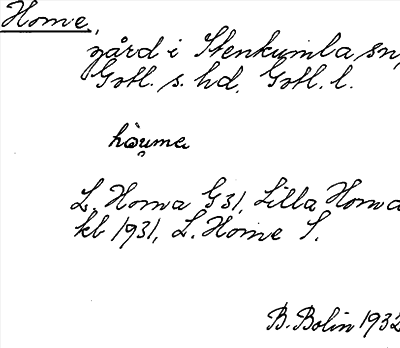 Home,
gård i Stenkumla sn,
Gotl. s. hd, Gotl. l.
hòu̯ma
L. Homa G31, Lilla Homa
kb 1931, L. Home S.
B. Bolin 1932